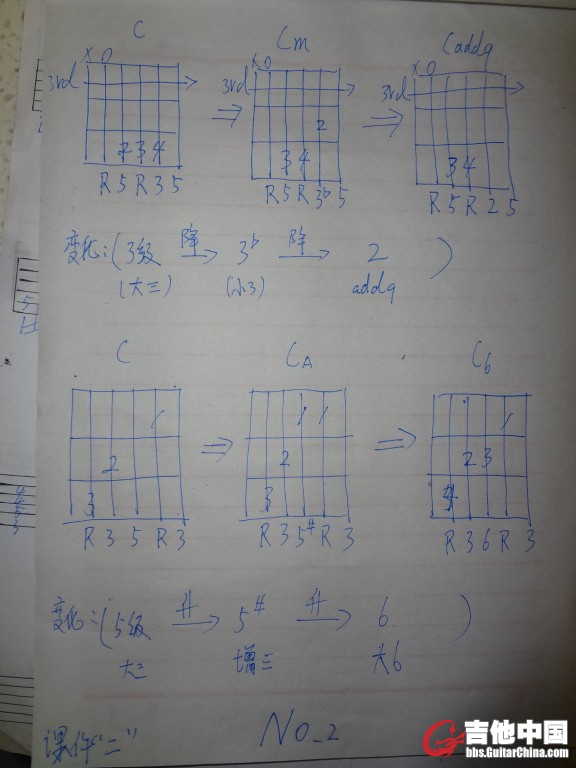 C Cm Cadd9
X O X O X O
3rd 3rd 3rd
2
2 3 4 3 4 3 4
R 5 R 3 5 R 5 R 3♭ 5 R 5 R 2 5
变化:(3级 降→ 3♭ 降→ 2 )
(大三) (小3) add9
C CA C6
1 1 1 1
2 2 2 3
3 3 4
R 3 5 R 3 R 3 5# R 3 R 3 6 R 3
变化:(5级 升→ 5# 升→ 6 )
大三 增三 大6
课件"二" NO_2
吉他中国
bbs.GuitarChina.com